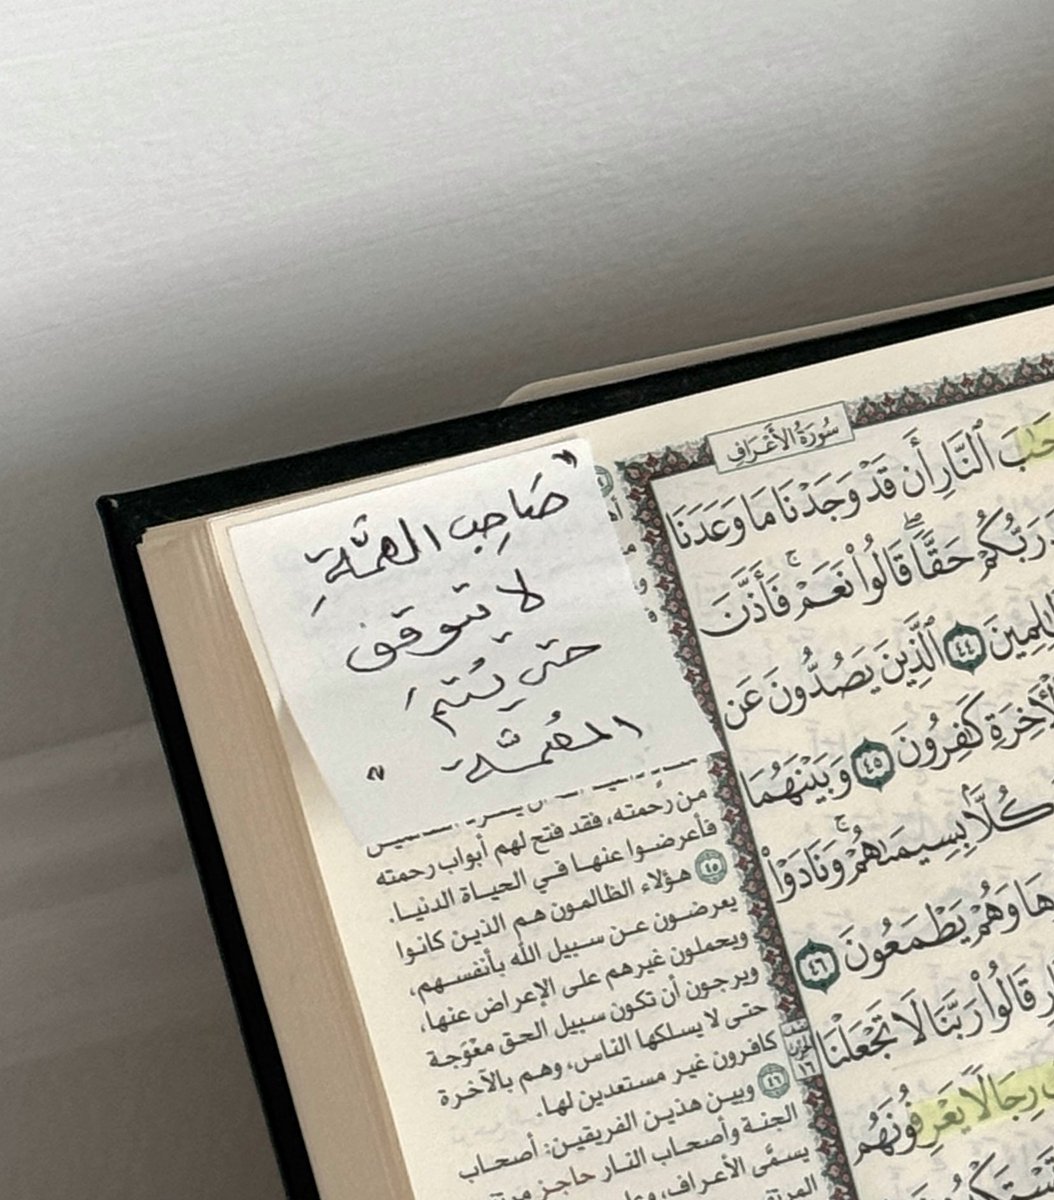 سُورَةُ الأَعْرَافِ
" صَاحِب الهمَّةِ
لا يتوقف
حتى يُتِمَّ
المُهمَّة "
أَن قَدْ وَجَدْنَا مَا وَعَدَنَا
رَبُّكُمْ حَقًّا قَالُواْ نَعَمْ فَأَذَّنَ
٤٤ ٱلَّذِينَ يَصُدُّونَ عَن
كَٰفِرُونَ ٤٥ وَبَيْنَهُمَا
كُلًّا بِسِيمَىٰهُمْ وَنَادَوْاْ
وَهُمْ يَطْمَعُونَ ٤٦
قَالُواْ رَبَّنَا لَا تَجْعَلْنَا
رِجَالًا يَعْرِفُونَهُم
من رحمته، فقد فتح لهم أبواب رحمته
فأعرضوا عنها في الحياة الدنيا.
٤٥ هؤلاء الظالمون هم الذين كانوا
يعرضون عن سبيل الله بأنفسهم،
ويحملون غيرهم على الإعراض عنها،
ويرجون أن تكون سبيل الحق معْوَجة
حتى لا يسلكها الناس، وهم بالآخرة
كافرون غير مستعدين لها.
٤٦ وبين هذين الفريقين: أصحاب
الجنة وأصحاب النار حاجز
يسمَّى الأعراف،